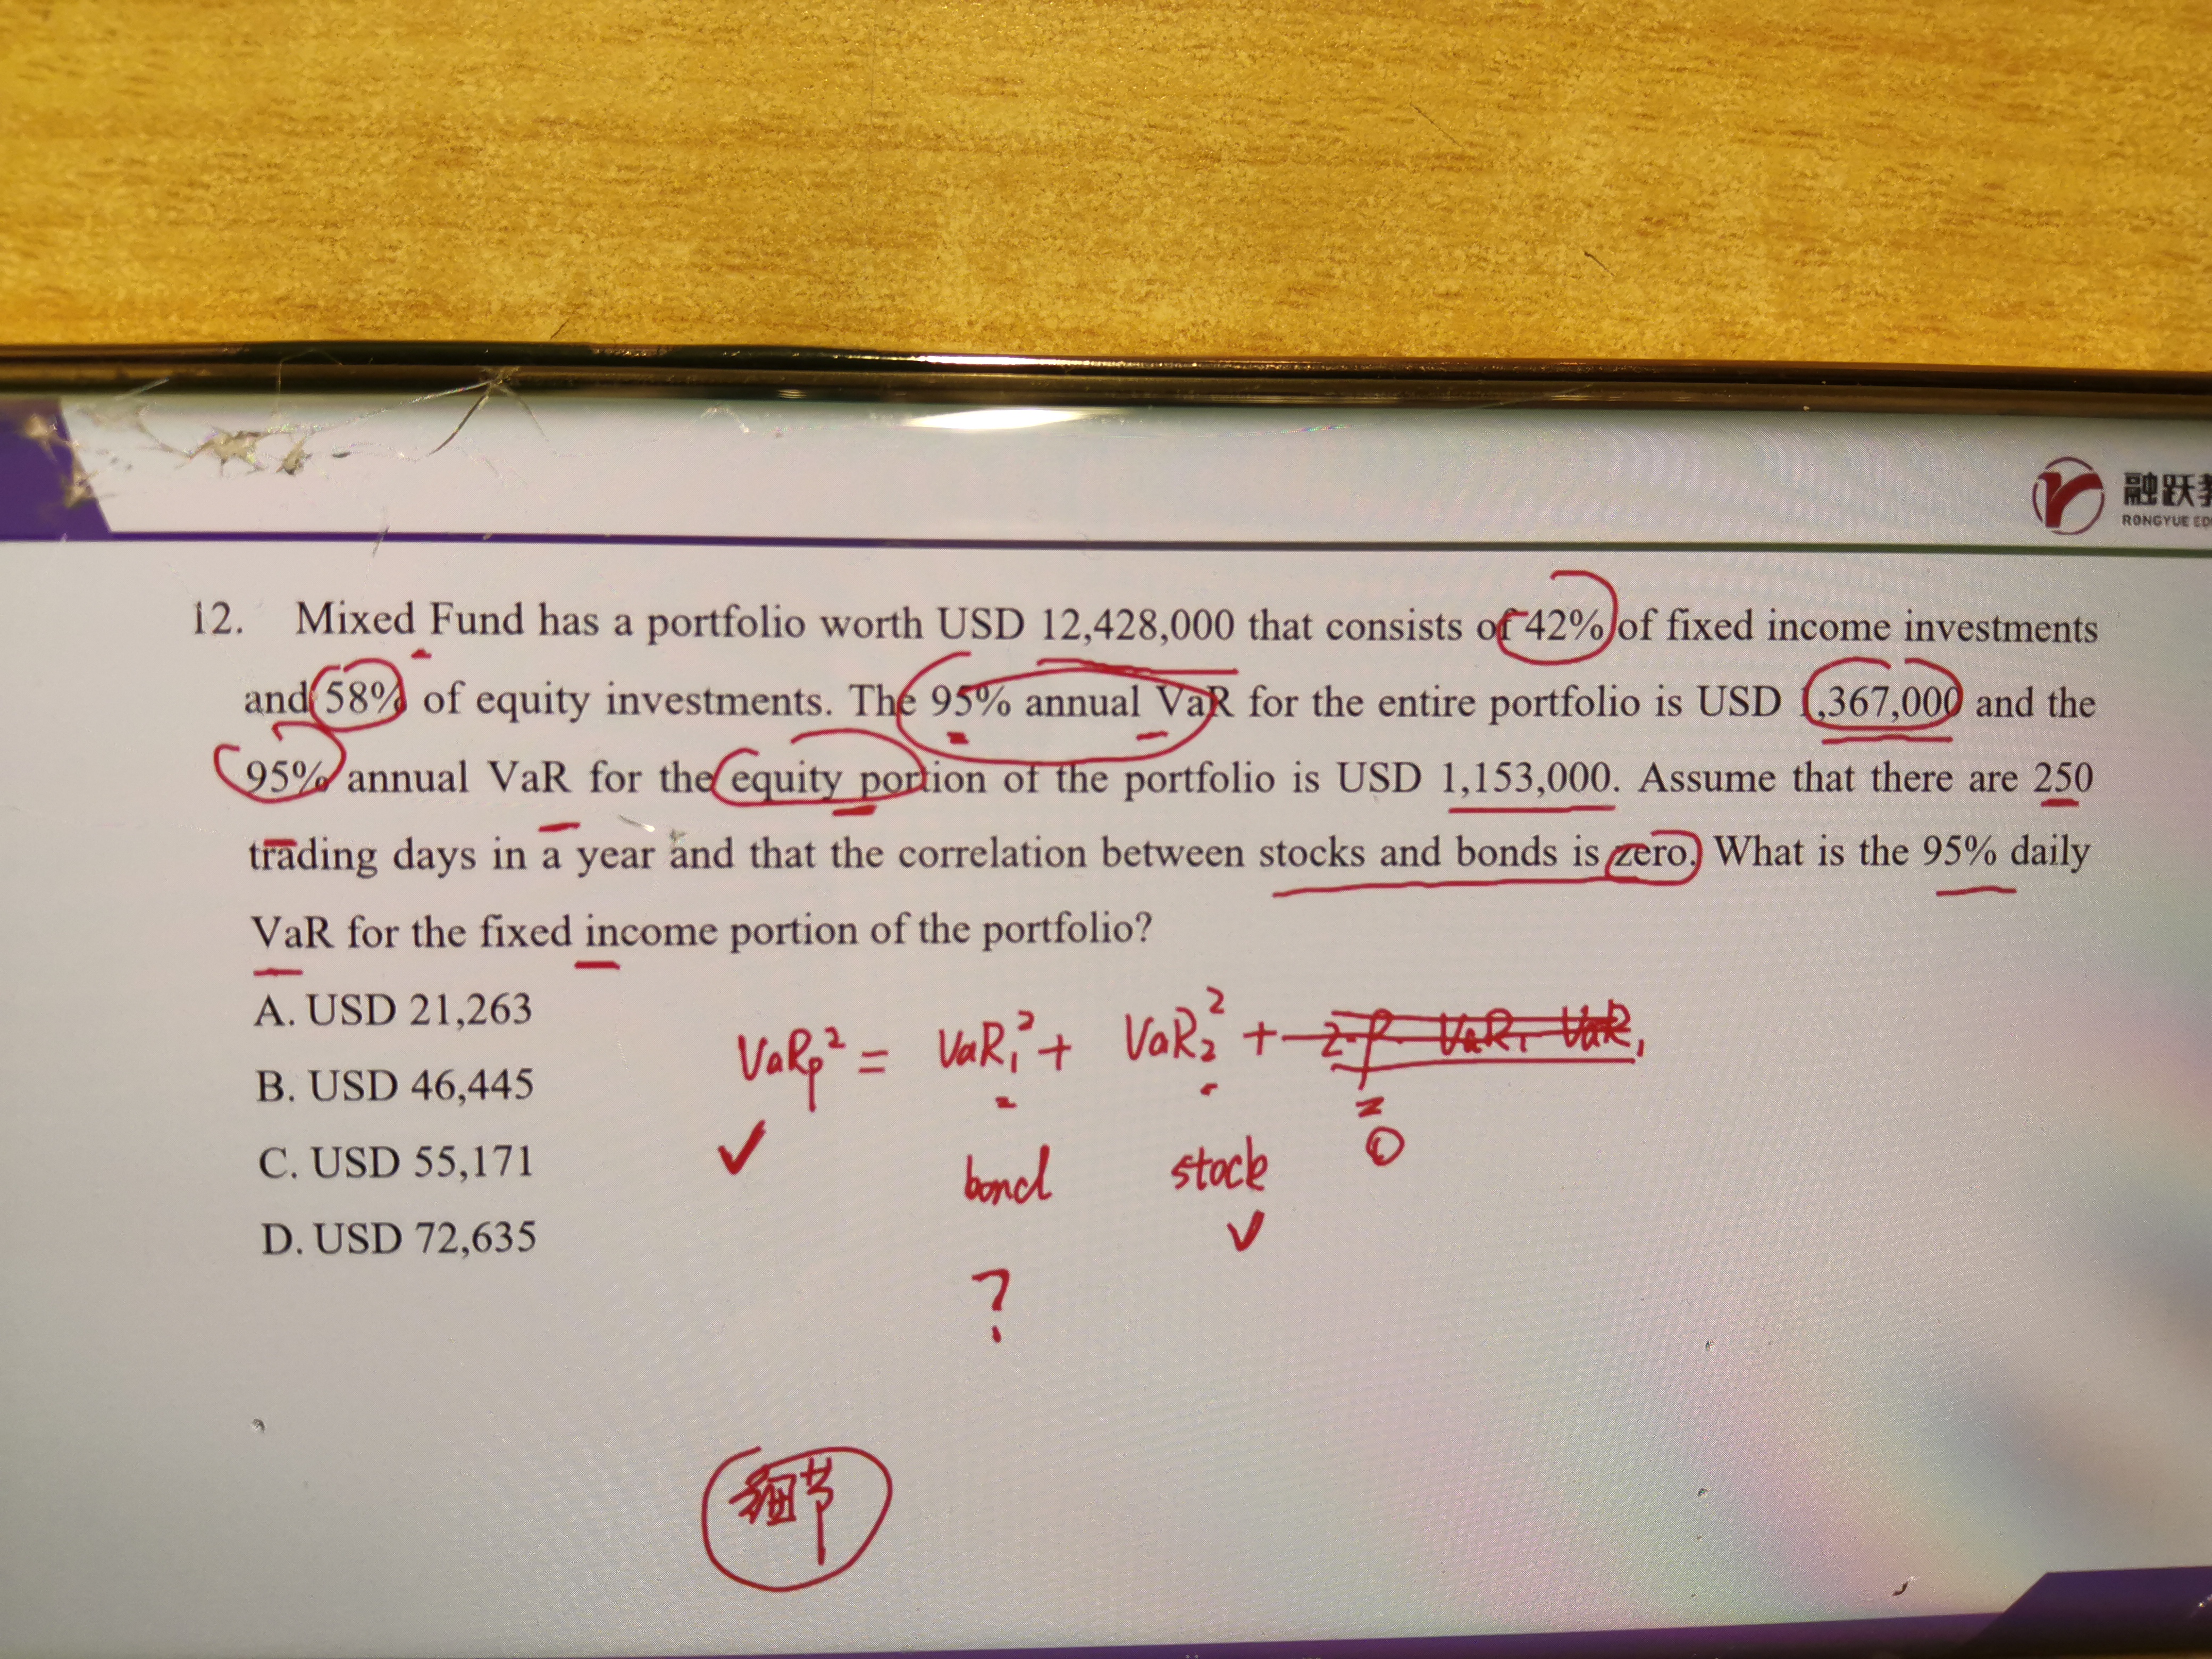 融跃
RONGYUE
12. Mixed Fund has a portfolio worth USD 12,428,000 that consists of 42% of fixed income investments
and 58% of equity investments. The 95% annual VaR for the entire portfolio is USD 1,367,000 and the
95% annual VaR for the equity portion of the portfolio is USD 1,153,000. Assume that there are 250
trading days in a year and that the correlation between stocks and bonds is zero. What is the 95% daily
VaR for the fixed income portion of the portfolio?
A. USD 21,263
B. USD 46,445
C. USD 55,171
D. USD 72,635
VaRp² = VaR₁² + VaR₂² + 2·ρ·VaR₁ VaR₁
=
0
bond stock
?
细节